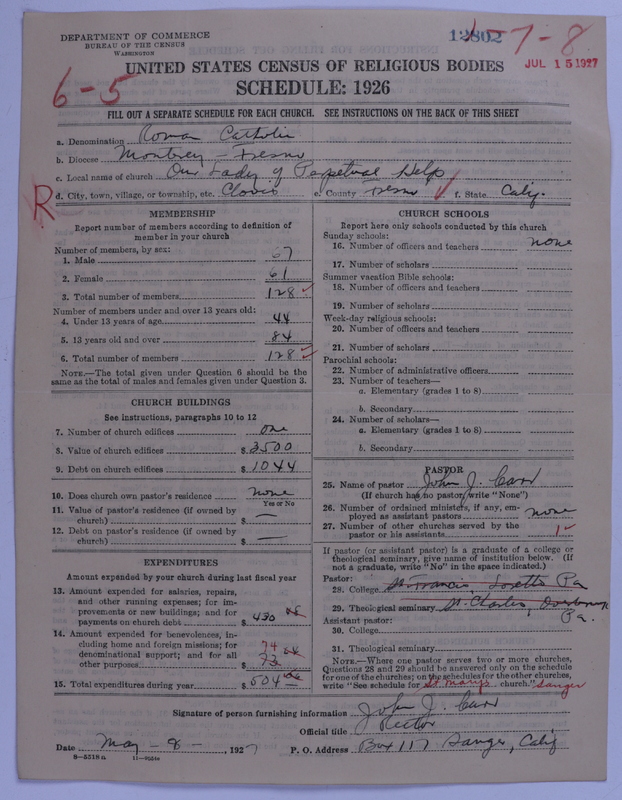 DEPARTMENT OF COMMERCE
BUREAU OF THE CENSUS
WASHINGTON
12802
7-8
JUL 15 1927
UNITED STATES CENSUS OF RELIGIOUS BODIES
SCHEDULE: 1926
6-5
FILL OUT A SEPARATE SCHEDULE FOR EACH CHURCH. SEE INSTRUCTIONS ON THE BACK OF THIS SHEET
a. Denomination Roman Catholic
b. Diocese Monterey - Fresno
c. Local name of church Our Lady of Perpetual Help
R d. City, town, village, or township, etc. Clovis e. County Fresno f. State Calif.
MEMBERSHIP
Report number of members according to definition of
member in your church
Number of members, by sex:
1. Male 67
2. Female 61
3. Total number of members 128
Number of members under and over 13 years old:
4. Under 13 years of age 44
5. 13 years old and over 84
6. Total number of members 128
NOTE.—The total given under Question 6 should be
the same as the total of males and females given under Question 3.
CHURCH BUILDINGS
See instructions, paragraphs 10 to 12
7. Number of church edifices one
8. Value of church edifices $ 3500
9. Debt on church edifices $ 1044
10. Does church own pastor's residence none
Yes or No
11. Value of pastor's residence (if owned by
church) $ —
12. Debt on pastor's residence (if owned by
church) $ —
EXPENDITURES
Amount expended by your church during last fiscal year
13. Amount expended for salaries, repairs,
and other running expenses; for im-
provements or new buildings; and for
payments on church debt $ 430
14. Amount expended for benevolences, in-
cluding home and foreign missions; for
denominational support; and for all
other purposes $ 73 74
15. Total expenditures during year $ 504
CHURCH SCHOOLS
Report here only schools conducted by this church
Sunday schools:
16. Number of officers and teachers none
17. Number of scholars
Summer vacation Bible schools:
18. Number of officers and teachers
19. Number of scholars
Week-day religious schools:
20. Number of officers and teachers
21. Number of scholars
Parochial schools:
22. Number of administrative officers
23. Number of teachers—
a. Elementary (grades 1 to 8)
b. Secondary
24. Number of scholars—
a. Elementary (grades 1 to 8)
b. Secondary
PASTOR
25. Name of pastor John J. Carr
(If church has no pastor, write "None")
26. Number of ordained ministers, if any, em-
ployed as assistant pastors none
27. Number of other churches served by the
pastor or his assistants 1
If pastor (or assistant pastor) is a graduate of a college or
theological seminary, give name of institution below. (If
not a graduate, write "No" in the space indicated.)
Pastor:
28. College St. Francis, Loretto Pa
29. Theological seminary St. Charles, Overbrook
Pa.
Assistant pastor:
30. College
31. Theological seminary
NOTE.—Where one pastor serves two or more churches,
Questions 28 and 29 should be answered only on the schedule
for one of the churches; on the schedules for the other churches,
write "See schedule for St. Marys church." Sanger
Signature of person furnishing information John J. Carr
Official title Rector
Date May - 8 -, 1927 P. O. Address Box 117 Sanger, Calif
8—5318a 11—9534s